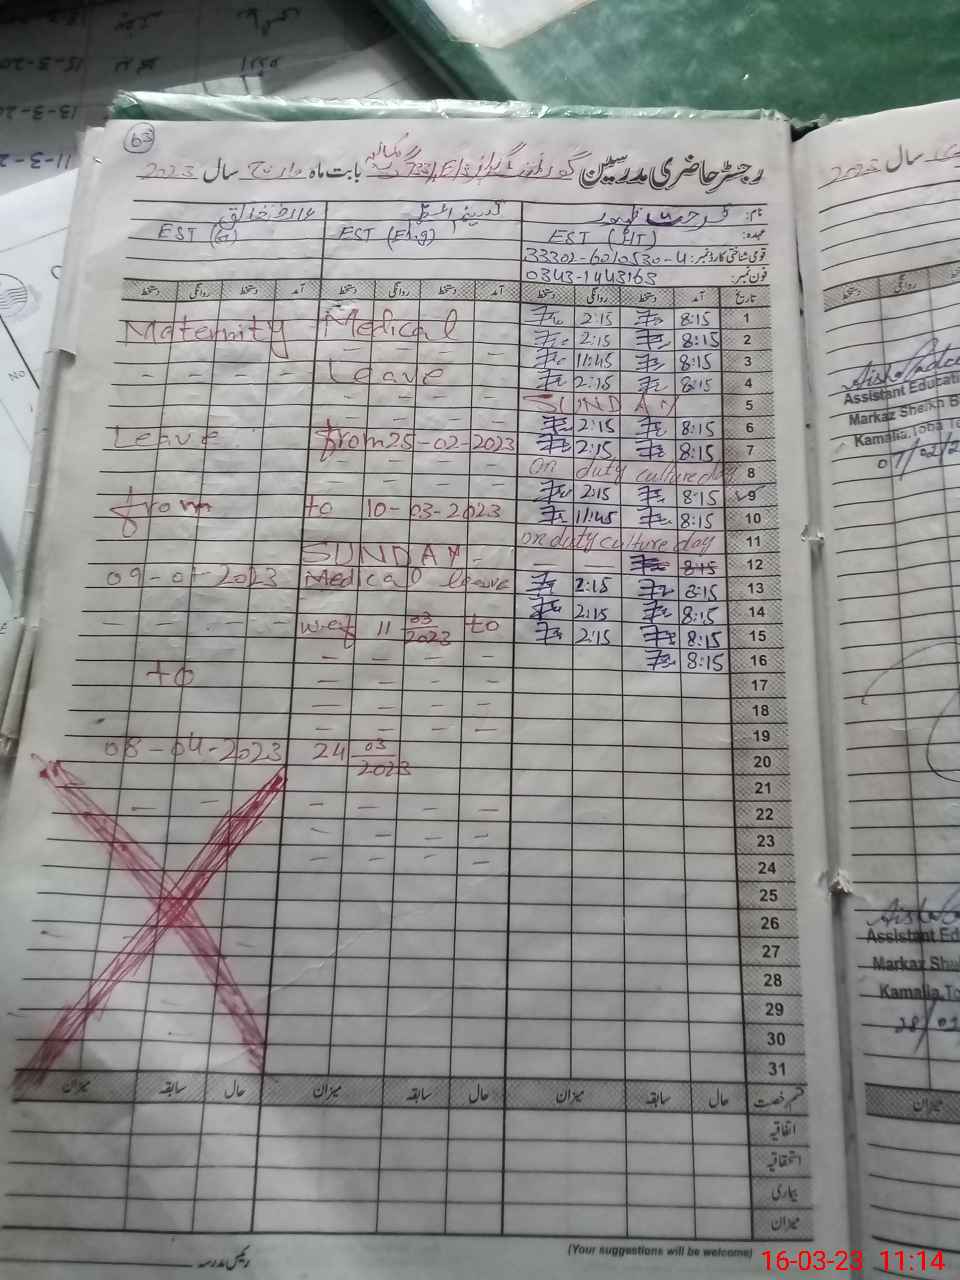 63
رجسٹر حاضری مدرسین گورنمنٹ گرلز بابت ماہ مارچ سال 2023
نام: فرحت ظہور
عہدہ: EST (HT) EST (Eng) EST (G)
قومی شناختی کارڈ نمبر: 33302-6210530-4
فون نمبر: 0343-1443163
تاریخ آمد دستخط روانگی دستخط آمد دستخط روانگی دستخط آمد دستخط روانگی دستخط
1 8:15 2:15 Medical Maternity
2 8:15 2:15
3 8:15 11:45 Leave
4 8:15 2:15
5 SUNDAY
6 8:15 2:15 from 25-02-2023 Leave
7 8:15 2:15
8 on duty culture day
9 8:15 2:15 to 10-03-2023 from
10 8:15 11:45
11 on duty culture day SUNDAY
12 8:15 Medical leave 09-01-2023
13 8:15 2:15
14 8:15 2:15 wef 11 03/2023 to
15 8:15 2:15
16 8:15 to
17
18
19
20 24 03/2023 08-04-2023
21
22
23
24
25
26
27
28
29
30
31
قسم رخصت حال سابقہ میزان حال سابقہ میزان حال سابقہ میزان
اتفاقیہ
استحقاقیہ
بیماری
میزان
رئیس مدرسہ
(Your suggestions will be welcome)
سال 2023
دستخط روانگی
Assistant Educati
Markaz Sheikh B
Kamalia, Toba Te
07/02/2
Assistant Ed
Markaz She
Kamalia, To
28/02
میزان
11-3-2
13-3-20
15-3-20
No
16-03-23 11:14